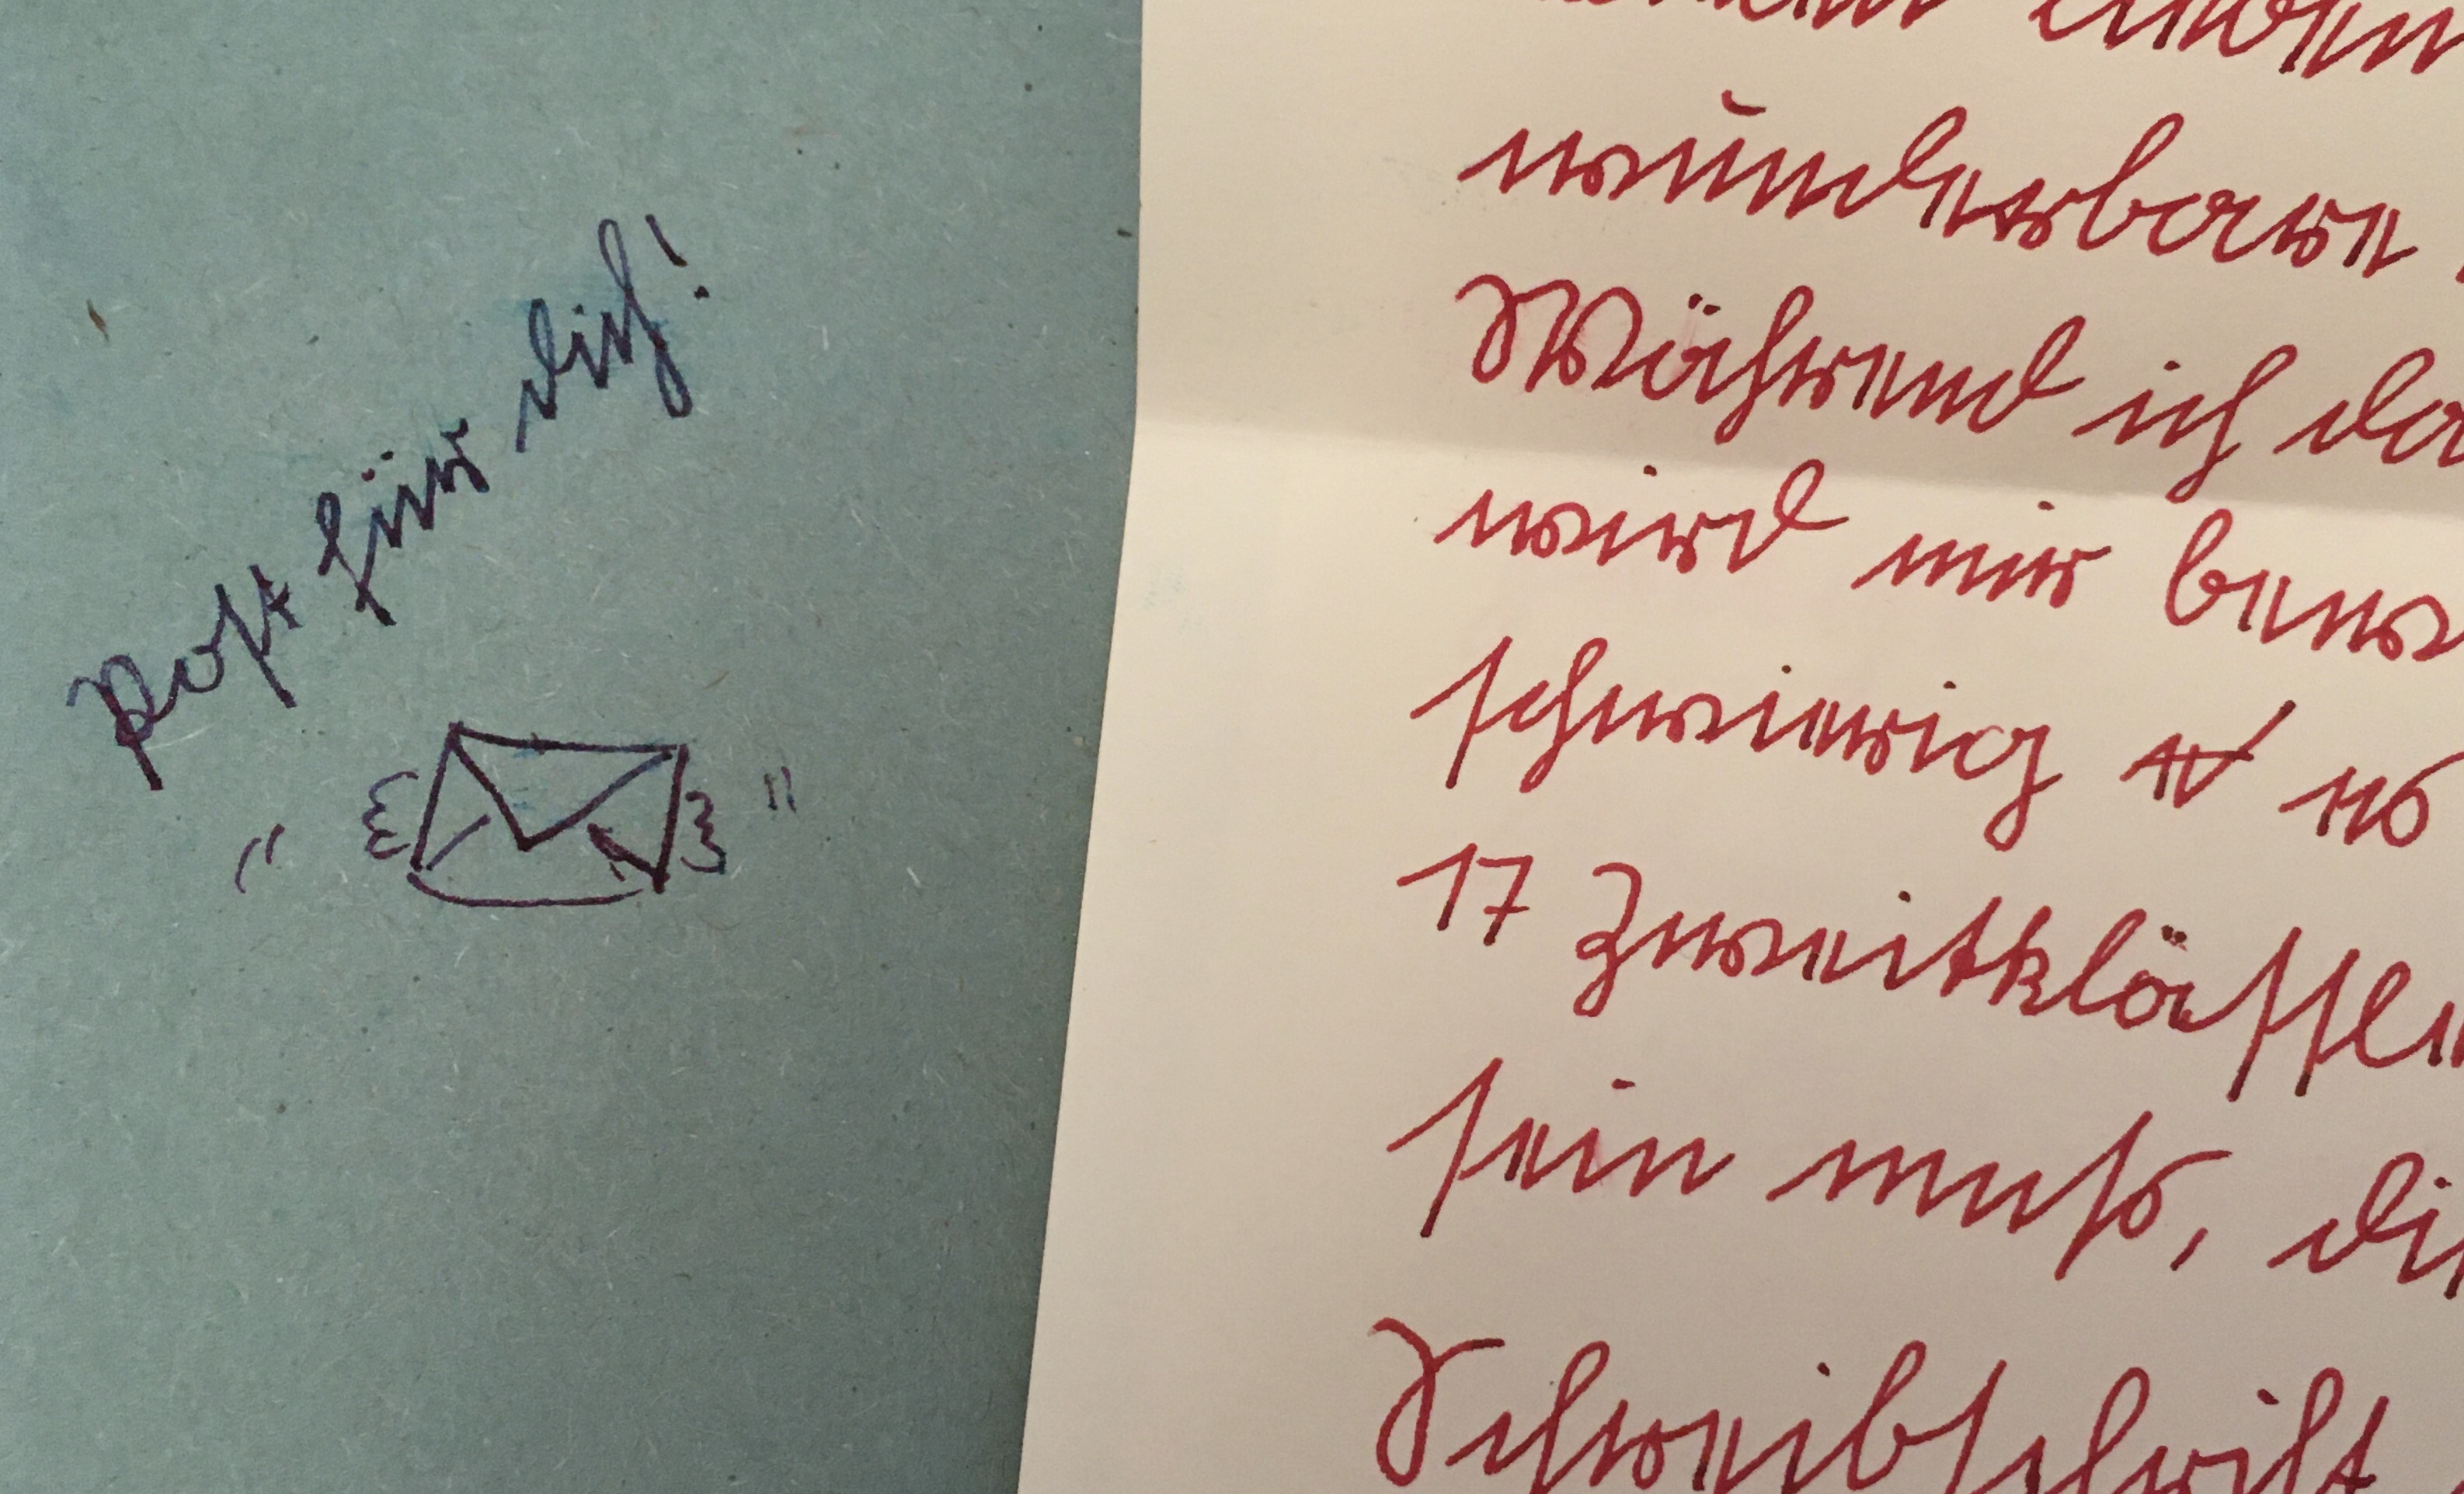 Post für dich!
wunderbare
Während ich da
wird mir bews
schwierig es
17 Zweitklässle
sein muß, die
Schreibschrift